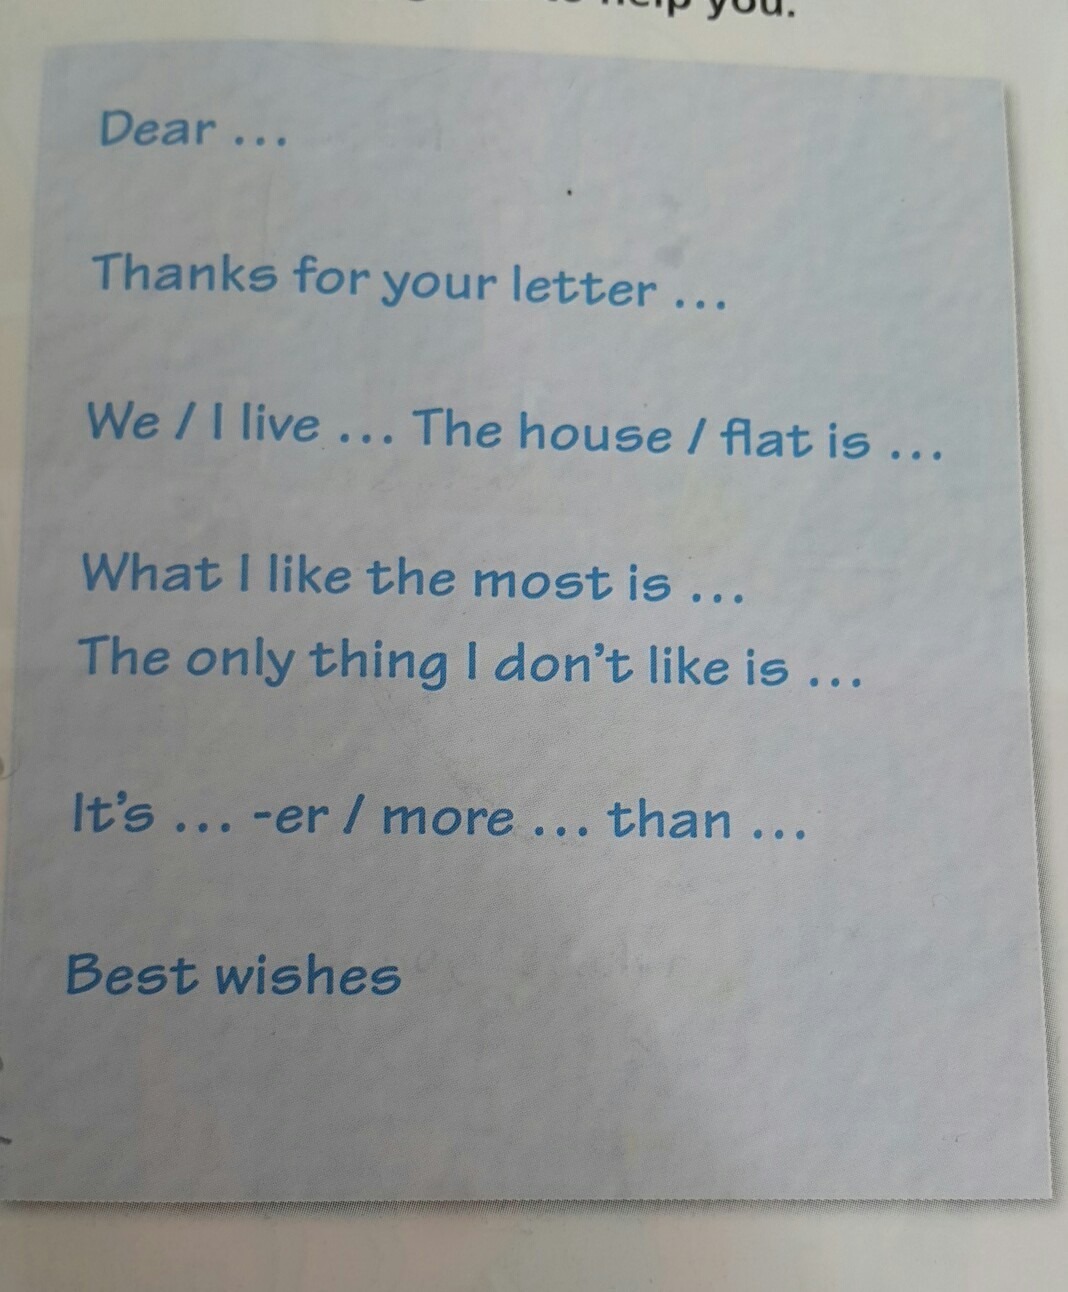 to help you.
Dear ...
Thanks for your letter ...
We / I live ... The house / flat is ...
What I like the most is ...
The only thing I don't like is ...
It's ... -er / more ... than ...
Best wishes